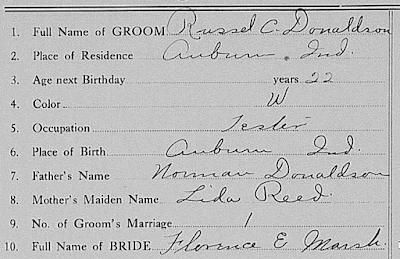 1. Full Name of GROOM Russel C. Donaldson
2. Place of Residence Auburn, Ind.
3. Age next Birthday years 22
4. Color W
5. Occupation Tester
6. Place of Birth Auburn Ind.
7. Father's Name Norman Donaldson
8. Mother's Maiden Name Lida Reed
9. No. of Groom's Marriage 1
10. Full Name of BRIDE Florence E Marsh